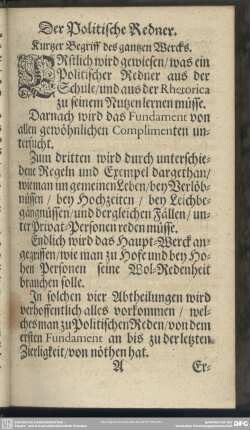 Der Politische Redner.
Kurtzer Begriff des gantzen Wercks.
ERstlich wird gewiesen/was ein
Politischer Redner aus der
Schule/und aus der Rhetorica
zu seinem Nutzen lernen müsse.
Darnach wird das Fundament von
allen gewöhnlichen Complimenten un-
tersucht.
Zum dritten wird durch unterschie-
dene Regeln und Exempel dargethan/
wie man im gemeinen Leben/bey Verlöb-
nüssen/bey Hochzeiten/bey Leichbe-
gängnüssen/und dergleichen Fällen/un-
ter Privat-Personen reden müsse.
Endlich wird das Haupt-Werck an-
gegriffen/wie man zu Hofe und bey Ho-
hen Personen seine Wol-Redenheit
brauchen solle.
In solchen vier Abtheilungen wird
verhoffentlich alles vorkommen/wel-
ches man zu Politischen Reden/von dem
ersten Fundament an bis zu der letzten
Zierligkeit/von nöthen hat.
A Er-